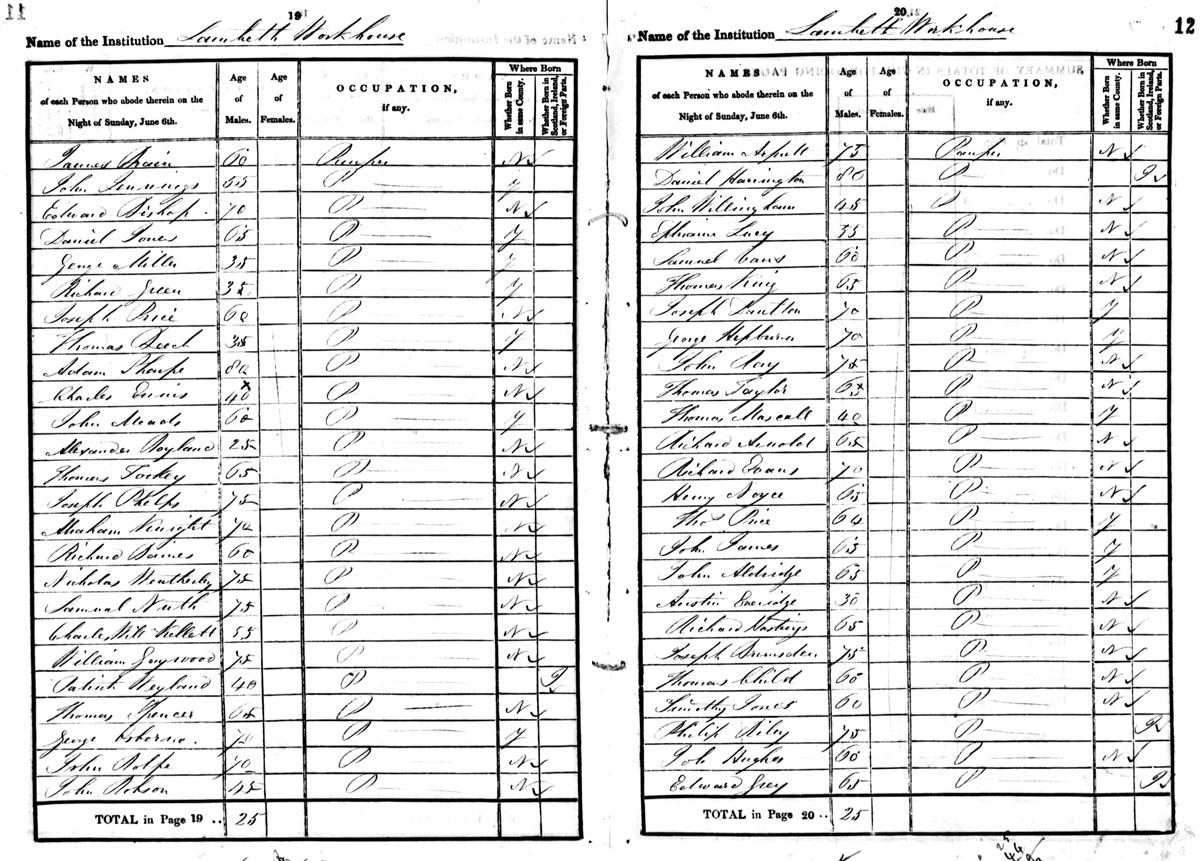 19
Name of the Institution Lambeth Workhouse
NAMES of each Person who abode therein on the Night of Sunday, June 6th. Age of Males. Age of Females. OCCUPATION, if any. Where Born Whether Born in same County. Whether Born in Scotland, Ireland, or Foreign Parts.
James 60 Pauper N
John Jennings 55 P y
Edward Bishop 70 P N
Daniel Jones 65 P y
George Miller 35 P y
Richard Green 35 P y
Joseph Price 60 P N
Thomas 35 P y
Adam Sharpe 80 P N
Charles Ennis 40 P N
John Meads 60 P y
Alexander 25 P N
Thomas 65 P N
Joseph Phelps 75 P N
Abraham Knight 70 P N
Richard Barnes 60 P N
Nicholas Weatherby 75 P N
Samual Nuth 75 P N
Charles Kellett 55 P N
William Gaywood 75 P N
Patrick Weyland 40 P
Thomas Spencer 65 P N
George Osborne. 70 P y
John Rolfe 70 P N
John Robson 45 P N
TOTAL in Page 19 .. 25
20
12
Name of the Institution Lambeth Workhouse
NAMES of each Person who abode therein on the Night of Sunday, June 6th. Age of Males. Age of Females. OCCUPATION, if any. Where Born Whether Born in same County. Whether Born in Scotland, Ireland, or Foreign Parts.
William 75 Pauper N
Daniel Harrington 80 P
John Willingham 45 P N
Ephraim Lucy 35 P N
Samuel 60 P N
Thomas King 65 P N
Joseph 70 P y
George Hepburn 70 P y
John 75 P N
Thomas Taylor 65 P N
Thomas Mascall 40 P y
Richard Arnold 65 P N
Richard Evans 70 P N
Henry Noyce 65 P N
Thos Price 64 P y
John James 65 P y
John Aldridge 65 P y
Austin 30 P N
Richard Hastings 65 P N
Joseph Brimsden 75 P N
Thomas Child 60 P N
Timothy Jones 60 P N
Philip Riley 75 P
Job Hughes 60 P N
Edward Grey 65 P
TOTAL in Page 20 .. 25